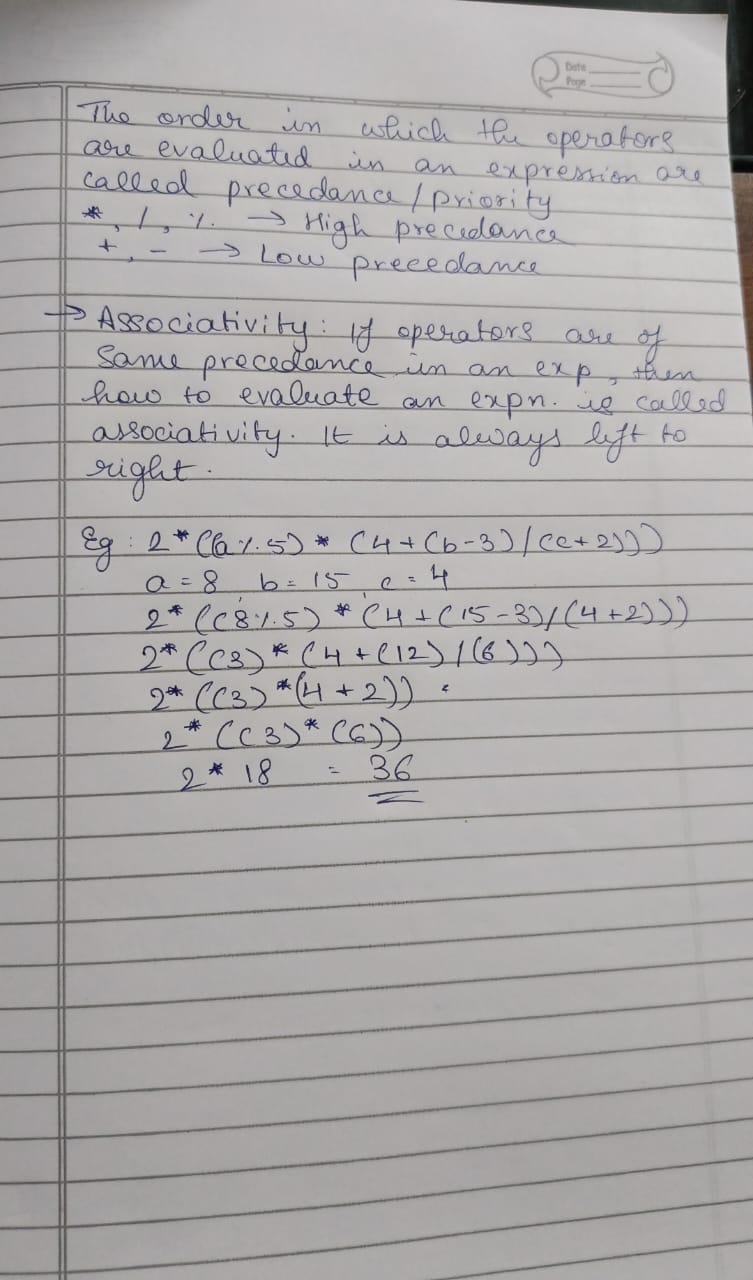 Date
Page
The order in which the operators
are evaluated in an expression are
called precedance / priority
*, /, % → High precedance
+, - → Low precedance
→ Associativity: If operators are of
Same precedance in an exp, then
how to evaluate an expn. is called
associativity. It is always left to
right.
Eg: 2 * ((a % 5) * (4 + (b-3) / (c+2)))
a = 8 b = 15 c = 4
2 * ((8 % 5) * (4 + (15-3) / (4+2)))
2 * ((3) * (4 + (12) / (6)))
2 * ((3) * (4 + 2))
2 * ((3) * (6))
2 * 18 = 36